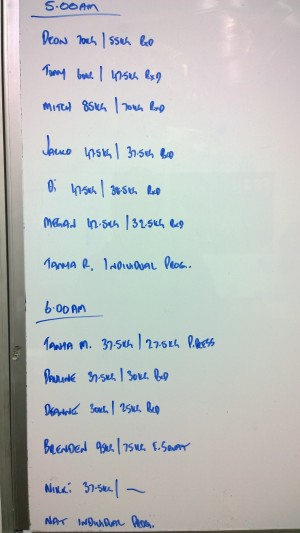 5.00AM
DEON 70KG | 55KG RXD
TONY 60KG | 47.5KG RXD
MITCH 85KG | 70KG RXD
JACKO 47.5KG | 37.5KG RXD
DI 47.5KG | 38.5KG RXD
MEGAN 42.5KG | 32.5KG RXD
TANIA R. INDIVIDUAL PROG.
6.00AM
TANIA M. 37.5KG | 27.5KG P.PRESS
PAULINE 37.5KG | 30KG RXD
DEANNE 30KG | 25KG RXD
BRENDEN 95KG | 75KG F.SQUAT
NIKKI 37.5KG | ~
NAT INDIVIDUAL PROG.